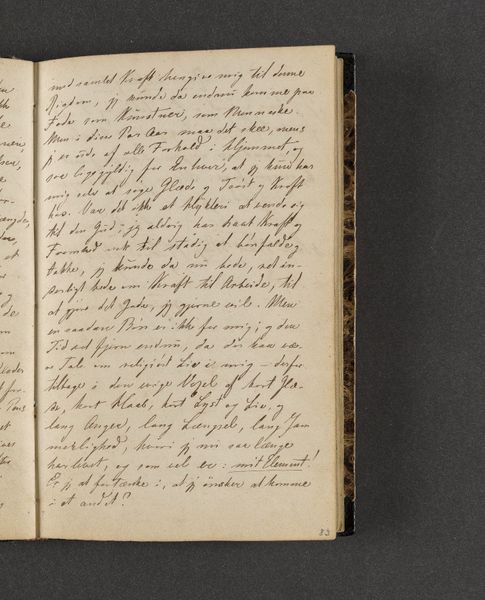 med samlet Kraft hengive mig til denne
Rigdom, jeg kunde da endnu komme paa
Fode som Kunstner, som Menneske.
Men i disse Par Aar maa det skee, mens
jeg er ude af alle Forhold i Hjemmet, og
saa ligegyldig for Enhver, at jeg kun har
mig selv at søge Glæde og Trøst og Kraft
hos. Var det ikke et Hykleri at vende sig
til den Gud, jeg aldrig har havt Kraft og
Fromhed nok til stadig at bønfalde og
takke, jeg kunde da nu bede, ret in-
derligt bede om Kraft til Arbeide, til
at gjøre det Gode, jeg gjerne vil. Men
en saadan Bøn er ikke for mig; og den
Tid vist fjern endnu, da der kan væ-
re Tale om religiøst Liv i mig — derfor
tilbage i den evige Vexel af kort Glæ-
de, kort Haab, kort Lyst og Liv, og
lang Anger, lang Længsel, lang Jam
merlighed, hvori jeg nu saa længe
har levet, og som vel er: mit Element!
Er jeg at fortænke i, at jeg ønsker at komme
i et andet?
83